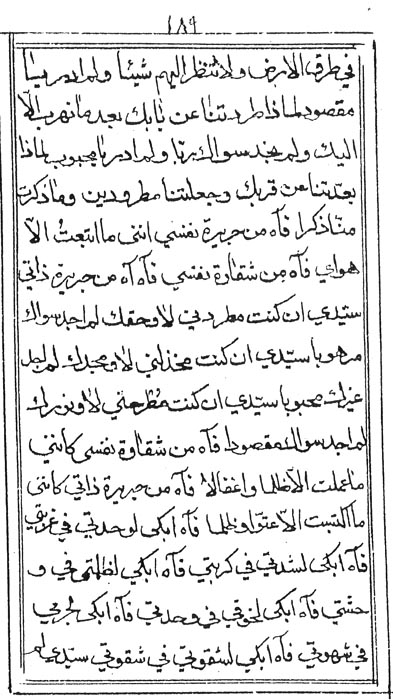 ١٨٩
في طرق الارض ولا تنظر اليهم شيئا ولم ادر يا
مقصود لماذا طردتنا عن بابك بعد ما نهرب الّا
اليك ولم نجد سواك ربّا ولم ادر يا محبوب لماذا
بعدّتنا عن قربك وجعلتنا مطرودين وما ذكرت
منّا ذكرا فآه من جريرة نفسي انني ما اتبعتُ الّا
هواي فآه من شقاوة نفسي فآه آه من جريرة ذاتي
سيّدي ان كنت مطردني لا وحقك لم اجد سواك
مرهوبا سيّدي ان كنت مخذلني لا ومجدك لم اجد
غيرك محبوبا سيّدي ان كنت مطرحني لا ونورك
لم اجد سواك مقصودا فآه من شقاوة نفسي كانني
ما عملت الّا ظلما واغفالا فآه من جريرة ذاتي كانني
ما اكتسبت الّا عتوّا وظلما فآه ابكي لوحدتي في غربتي
فآه ابكي لشدتي في كربتي فآه ابكي لظلمتي في و
حشتي فآه ابكي لخوفي في وحدتي فآه ابكي لجرمي
في شهوتي فآه ابكي لشقوتي في شقوتي سيّدي لم